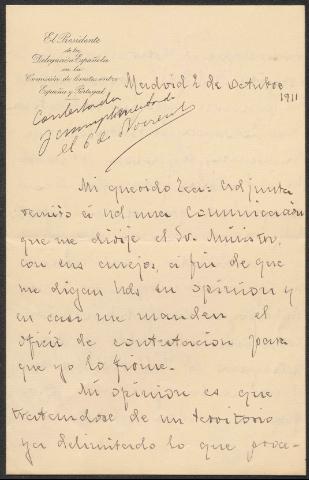 El Presidente
de la
Delegación Española
en la
Comisión de límites entre
España y Portugal
Madrid 2 de Octubre
1911
Contestada
y cumplimentada
el 6 de Noviembre
Mi querido Adjunta
remito á Vd una comunicación
que me dirije el Sr. Ministro,
con sus anejos, á fin de que
me digan Vds su opinion y
en caso me manden el
oficio de contestación para
que yo lo firme.
Mi opinion es que
tratandose de un territorio
ya delimitado lo que proce-